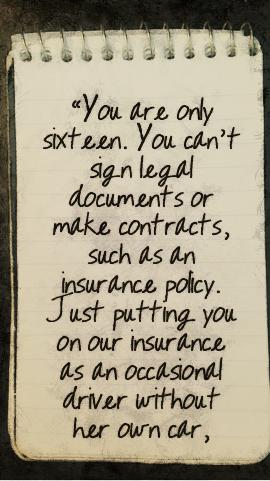 “You are only
sixteen. You can't
sign legal
documents or
make contracts,
such as an
insurance policy.
Just putting you
on our insurance
as an occasional
driver without
her own car,